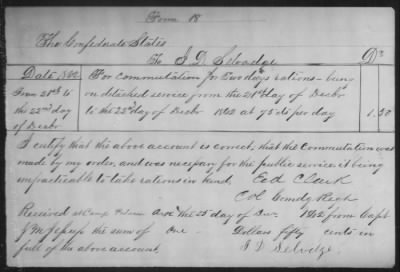 Form 18
The Confederate States
To J. D. Selvedge Dr
Date 1862 For commutation for Two days rations - being
From 21st to on detached service from the 21st day of Decbr
the 22nd day to the 22d day of Decbr 1862 at 75 cts per day 1.50
of Decbr
I certify that the above account is correct, that the commutation was
made by my order, and was necessary for the public service it being
impracticable to take rations in kind. Ed Clark
Col Comdg Regt
Received at Camp Ark. the 25 day of Dec. 1862 from Capt
J M Jessup the sum of One Dollars fifty cents in
full of the above account. J D Selvedge